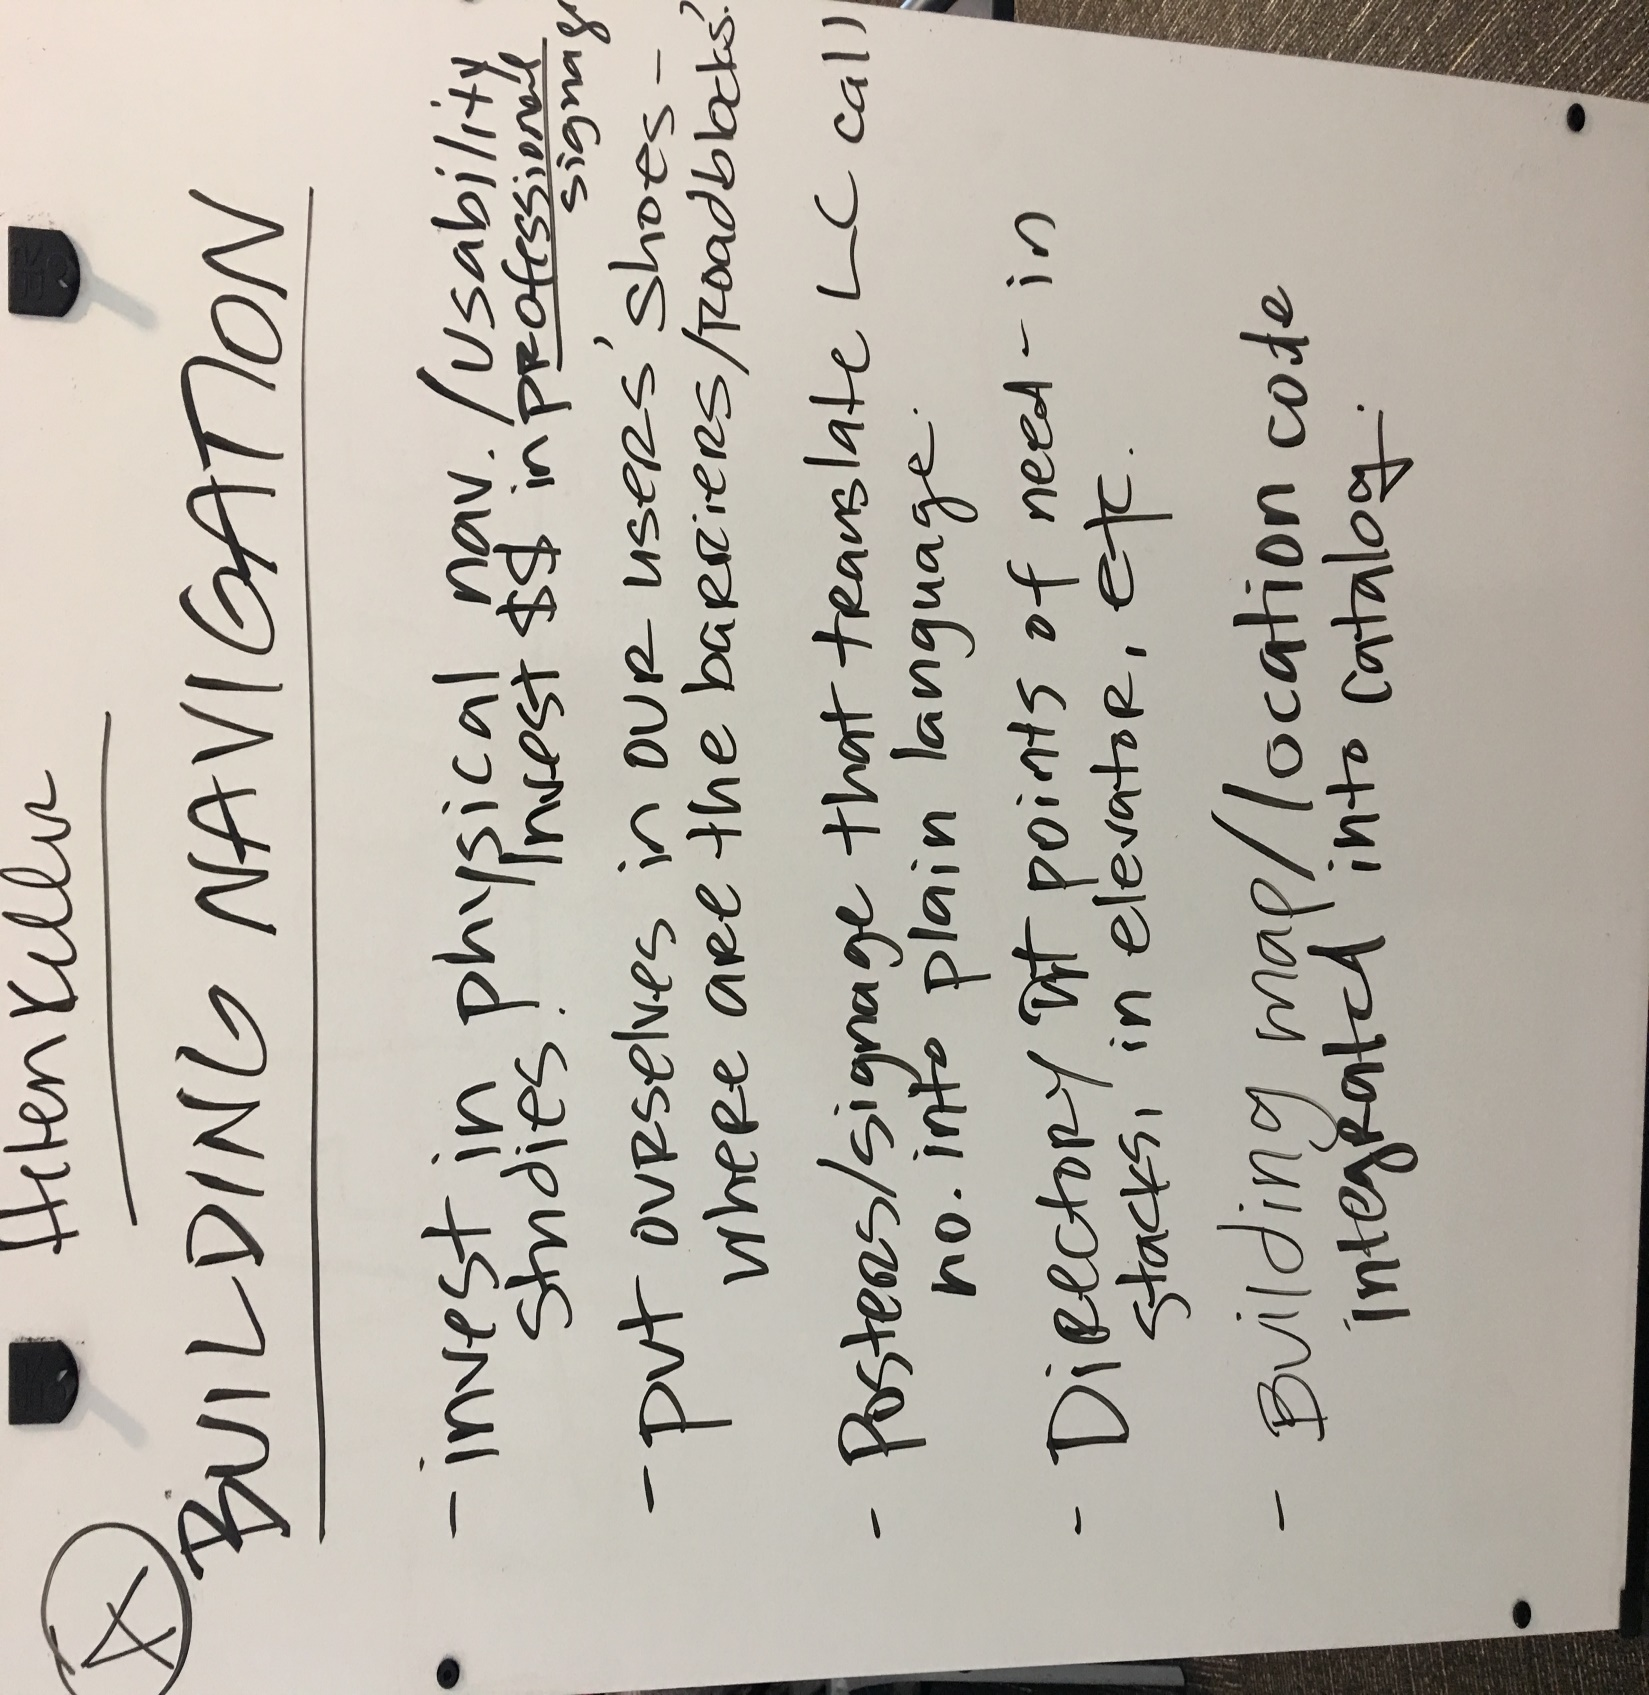 Helen Keller
A
BUILDING NAVIGATION
- invest in physical nav./usability
studies. invest $$ in professional
signage
- put ourselves in our users' shoes -
where are the barriers/roadblocks?
- Posters/signage that translate LC call
no. into plain language.
- Directory at points of need - in
stacks, in elevator, etc.
- Building map/location code
integrated into catalog.